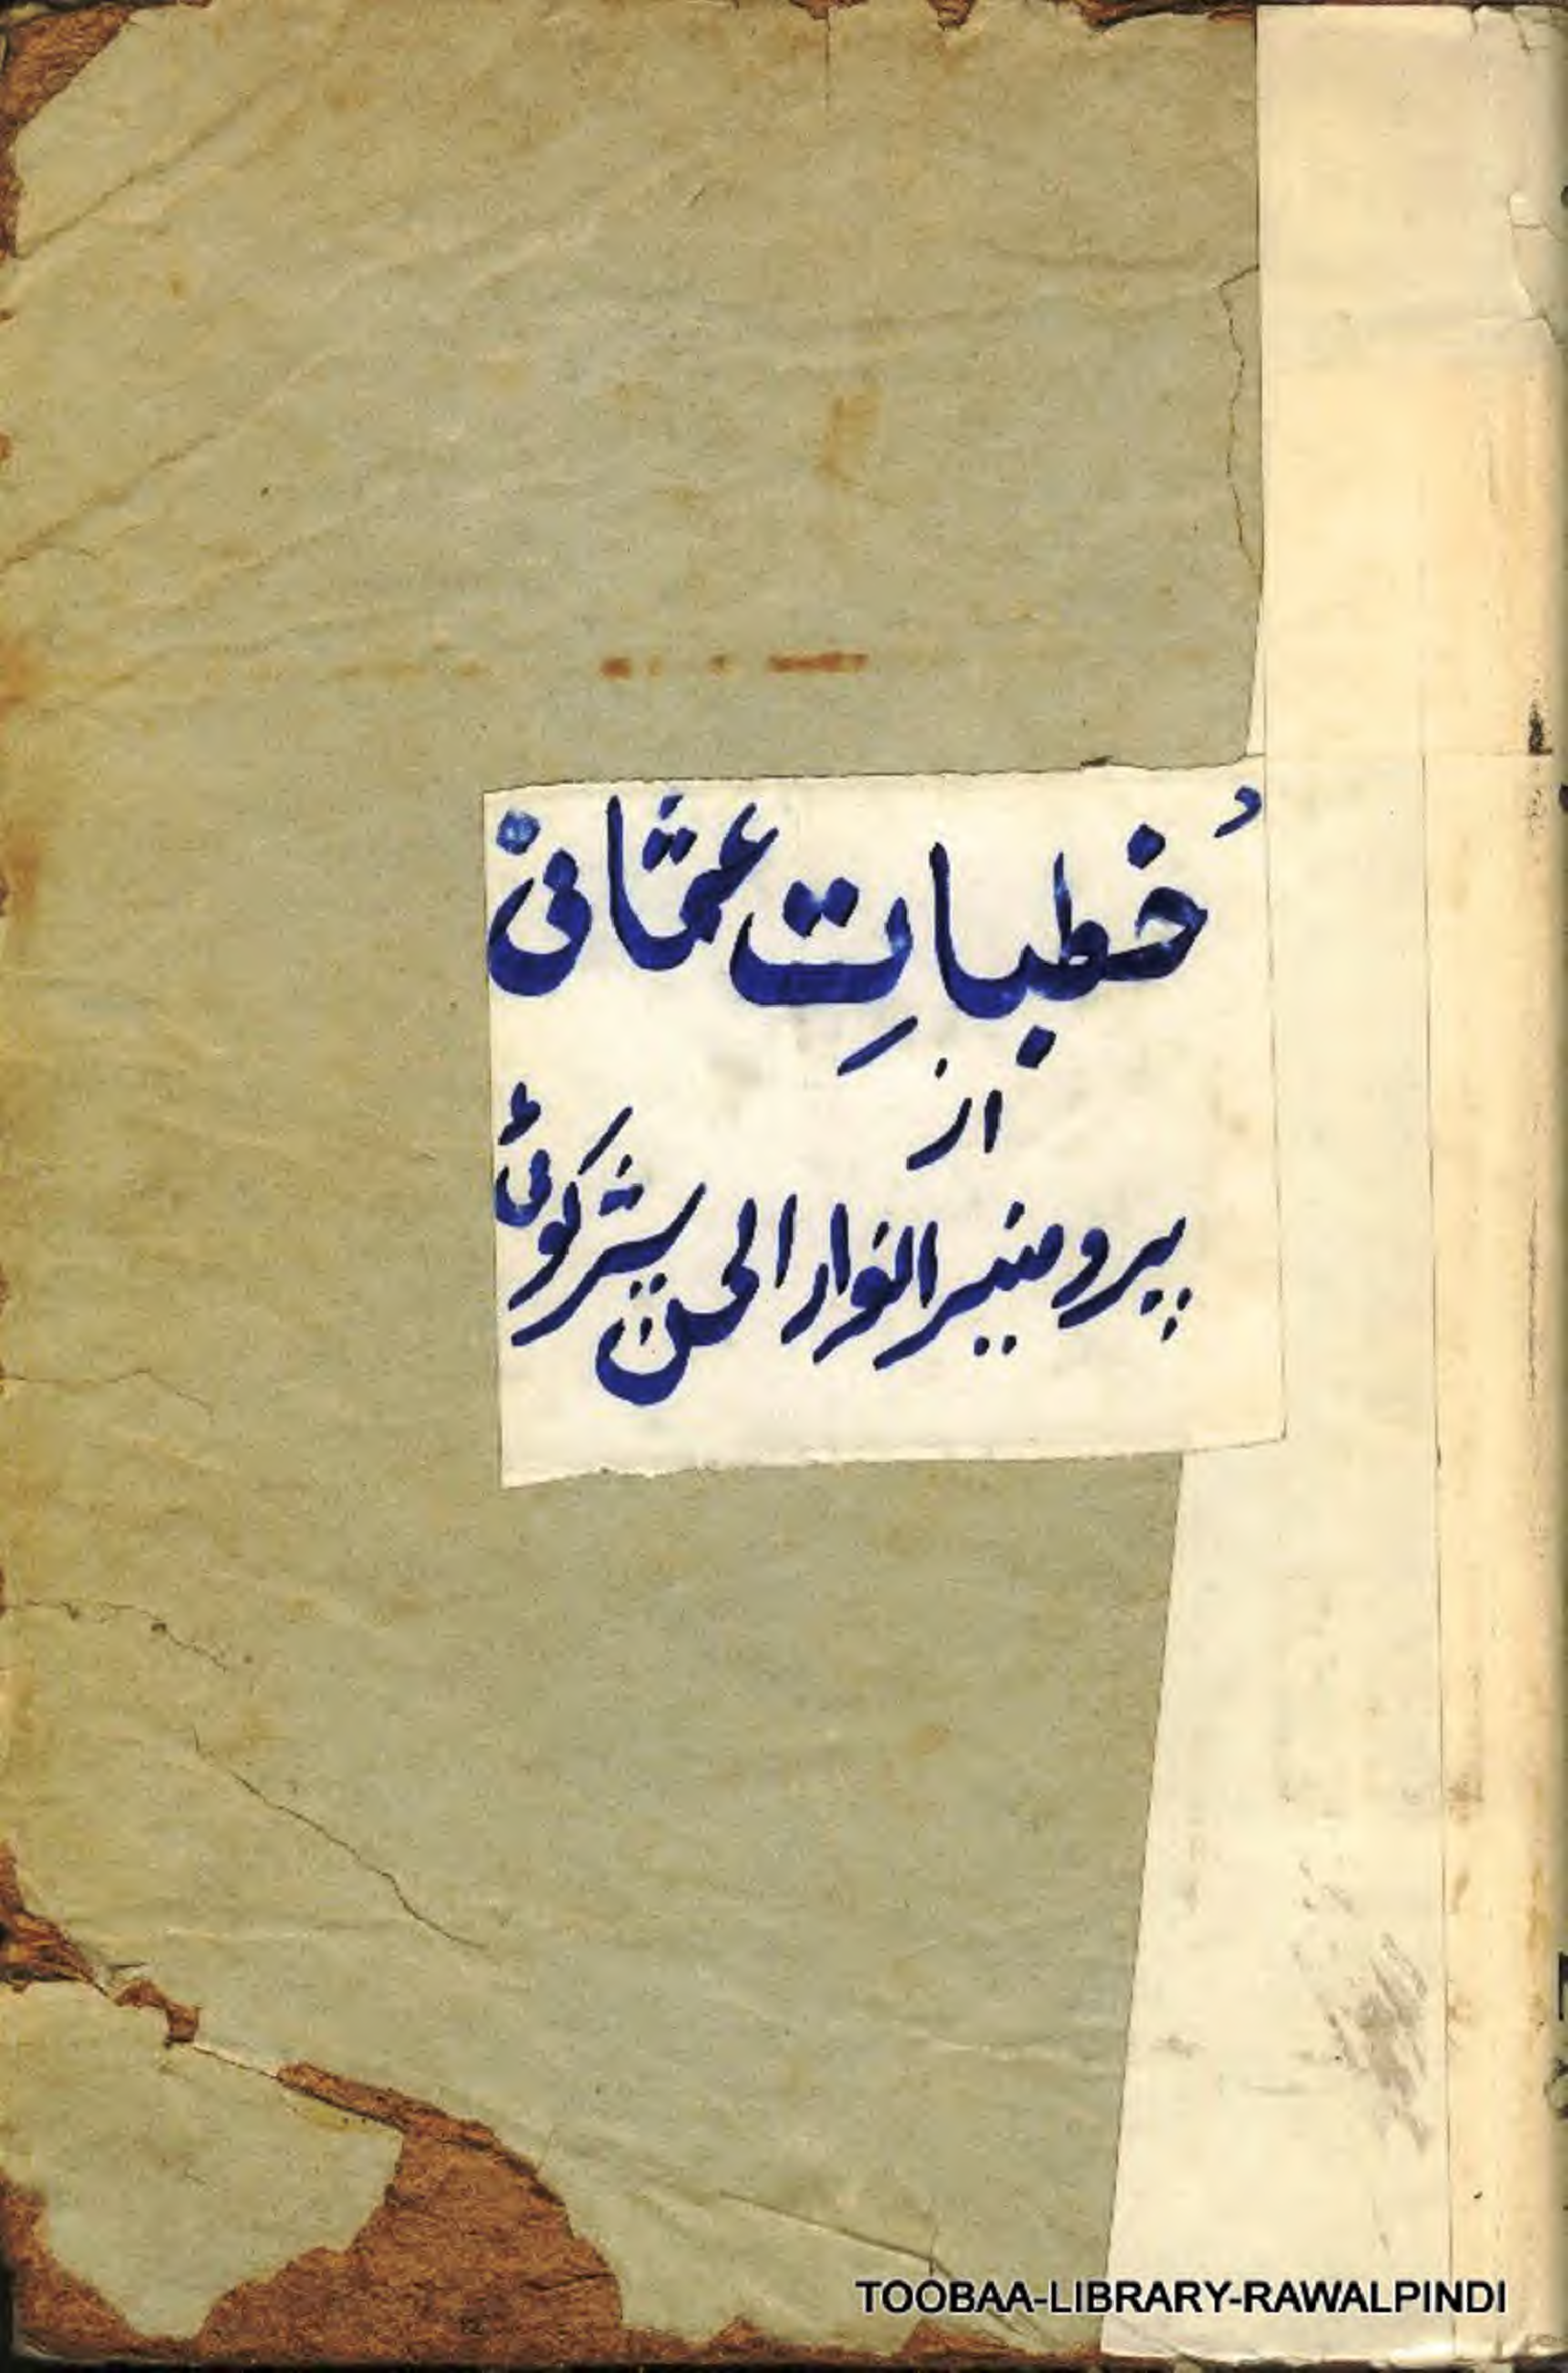 خُطباتِ عثمانیؒ
از
پروفیسر انوار الحسن شیرکوٹی
TOOBAA-LIBRARY-RAWALPINDI